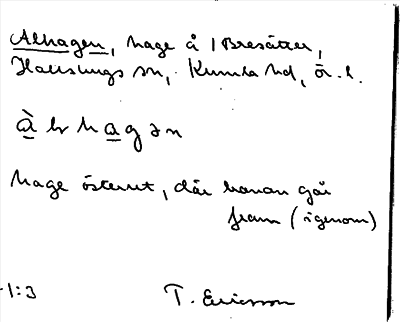 Alhagen, hage å 1 Bresätter,
Hallsbergs sn, Kumla hd, ör. l.
à l h a g ə n
hage österut, där banan går
fram (igenom)
-1:3 T. Ericsson